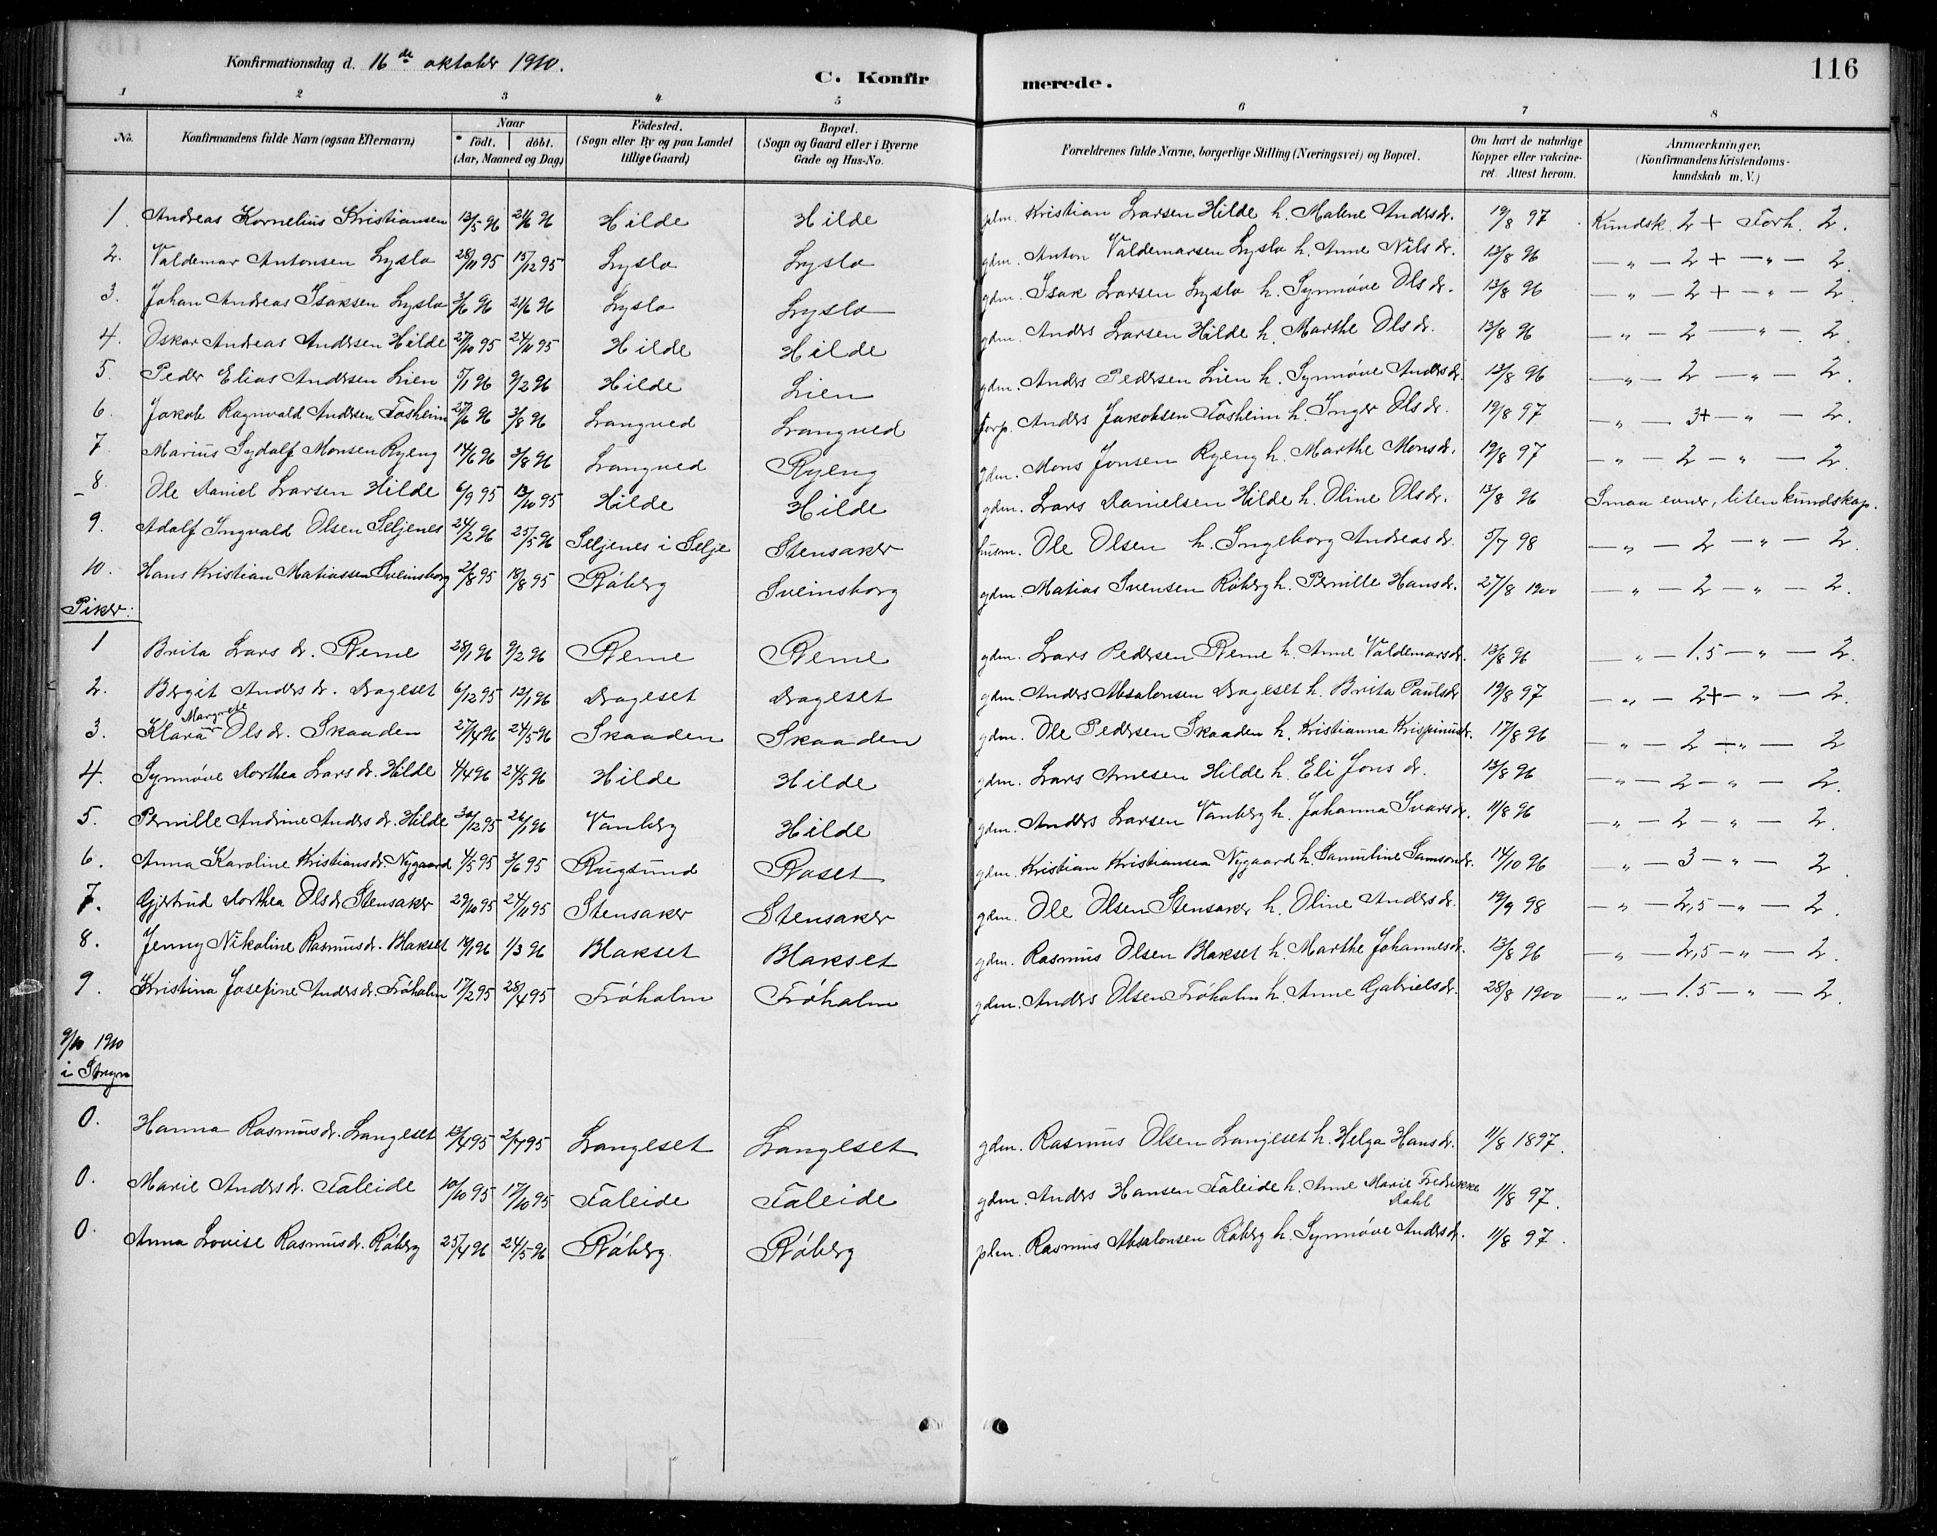 Konfirmationsdag d. 16de oktober 1910.
C. Konfirmerede.
116
1 2 3 4 5 6 7 8
No. Konfirmandens fulde Navn (ogsaa Efternavn) Naar født. døbt. (Aar, Maaned og Dag) Fødested. (Sogn eller By og paa Landet tillige Gaard) Bopæl. (Sogn og Gaard eller i Byerne Gade og Hus-No. Forældrenes fulde Navne, borgerlige Stilling (Næringsvei) og Bopæl. Om havt de naturlige Kopper eller vakcineret. Attest herom. Anmærkninger. (Konfirmandens Kristendomskundskab m. V.)
1. Andreas Kornelius Kristiansen 13/5 96 21/6 96 Hilde Hilde plm. Kristian Larsen Hilde h. Malene Andersdr. 19/8 97 Kundsk. 2+ Forh. 2.
2. Valdemar Antonsen Lyslo 28/11 95 15/12 95 Lyslo Lyslo gdm. Anton Valdemarsen Lyslo h. Anne Nilsdr. 13/8 96 — " — 2 + — " — 2.
3. Johan Andreas Isaksen Lyslo 3/6 96 21/6 96 Lyslo Lyslo gdm. Isak Larsen Lyslo h. Synnøve Olsdr. 13/8 96 — " — 2 + — " — 2.
4. Oskar Andreas Andersen Hilde 27/10 95 24/11 95 Hilde Hilde gdm. Anders Larsen Hilde h. Marthe Olsdr. 13/8 96 — " — 2 — " — 2.
5. Peder Elias Andersen Lien 5/1 96 9/2 96 Hilde Lien gdm. Anders Pedersen Lien h. Synnøve Andersdr. 13/8 96 — " — 2 — " — 2.
6. Jakob Ragnvald Andersen Fosheim 27/6 96 3/8 96 Langved Langved forp. Anders Jakobsen Fosheim h. Inger Olsdr. 19/8 97 — " — 3+ — " — 2.
7. Marius Sydolf Monsen Ryeng 14/6 96 3/8 96 Langved Ryeng gdm. Mons Jonsen Ryeng h. Marthe Monsdr. 19/8 97 — " — 2 — " — 2.
8. Ole Daniel Larsen Hilde 6/9 95 13/10 95 Hilde Hilde gdm. Lars Danielsen Hilde h. Oline Olsdr. 13/8 96 Smaa evner, liten kundskap.
9. Adolf Ingvald Olsen Seljenes 24/2 96 25/5 96 Seljenes i Selje Stensaker husm. Ole Olsen h. Ingeborg Andreasdr. 5/7 98 — " — 2 — " — 2.
10. Hans Kristian Matiassen Sveinsborg 2/8 95 18/8 95 Røberg Sveinsborg gdm. Matias Svensen Røberg h. Pernille Hansdr. 27/8 1900 — " — 2 — " — 2.
Piker:
1 Brita Larsdr. Reme 28/1 96 9/2 96 Reme Reme gdm. Lars Pedersen Reme h. Anne Valdemarsdr. 13/8 96 — " — 1.5 — " — 2.
2. Bergit Andersdr. Drageset 6/12 95 12/1 96 Drageset Drageset gdm. Anders Absalonsen Drageset h. Brita Paulsdr 19/8 97 — " — 2+ — " — 2.
3. Klara Margrete Olsdr. Skaaden 27/4 96 24/5 96 Skaaden Skaaden gdm. Ole Pedersen Skaaden h. Kristianna Krispinusdr. 17/8 96 — " — 2 + — " — 2
4. Synnøve Dorthea Larsdr. Hilde 4/4 96 24/5 96 Hilde Hilde gdm. Lars Arnesen Hilde h. Eli Jonsdr. 13/8 96 — " — 2 — " — 2.
5. Pernille Andrine Andersdr. Hilde 30/12 95 26/1 96 Vanberg Hilde gdm. Anders Larsen Vanberg h. Johanna Ivarsdr. 11/8 96 — " — 2 — " — 2.
6. Anna Karoline Kristiansdr. Nygaard 4/5 95 3/6 95 Rugsund Roset gdm. Kristian Kristiansen Nygaard h. Samuline Samsondr. 14/10 96 " — 3 — " — 2.
7. Gjertrud Dorthea Olsdr Stensaker 29/10 95 24/11 95 Stensaker Stensaker gdm. Ole Olsen Stensaker h. Oline Andersdr. 19/9 98 — " — 2,5 — " — 2.
8. Jenny Nikoline Rasmusdr. Blakset 18/1 96 1/3 96 Blakset Blakset gdm. Rasmus Olsen Blakset h. Marthe Johannesdr. 13/8 96 — " — 2,5 — " — 2.
9. Kristina Josefine Andersdr. Frøholm 17/2 95 28/4 95 Frøholm Frøholm gdm. Anders Olsen Frøholm h. Anne Gabrielsdr. 28/8 1900 — " — 1.5 — " — 2.
9/10 1910
i Stryn
0. Hanna Rasmusdr. Langeset 13/4 95 2/7 95 Langeset Langeset gdm. Rasmus Olsen Langeset h. Helga Hansdr. 11/8 1897.
0. Marie Andersdr. Faleide 10/10 95 17/10 95 Faleide Faleide gdm. Anders Hansen Faleide h. Anne Marie Fredrikke Dahl 11/8 97.
0. Anna Lovise Rasmusdr. Røberg 25/4 96 24/5 96 Røberg. Røberg plm. Rasmus Absalonsen Røberg h. Synnøve Andersdr. 11/8 97.